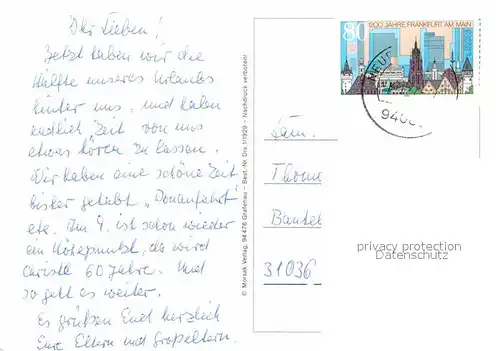 Ihr Lieben!
Jetzt haben wir die
Hälfte unseres Urlaubs
hinter uns, und haben
endlich Zeit von uns
etwas hören zu lassen.
Wir haben eine schöne Zeit
bisher gehabt "Donaufahrt"
etc. Am 4. ist schon wieder
ein Höhepunkt, da wird
Christl 60 Jahre. Und
so geht es weiter.
Es grüßen Euch herzlich
Eure Eltern und Großeltern.
© Morsak Verlag, 94476 Grafenau – Best. Nr. Dra 1/1929 – Nachdruck verboten!
80
1200 JAHRE FRANKFURT AM MAIN
DEUTSCHE
Fam.
Thom
31036
privacy protection
Datenschutz